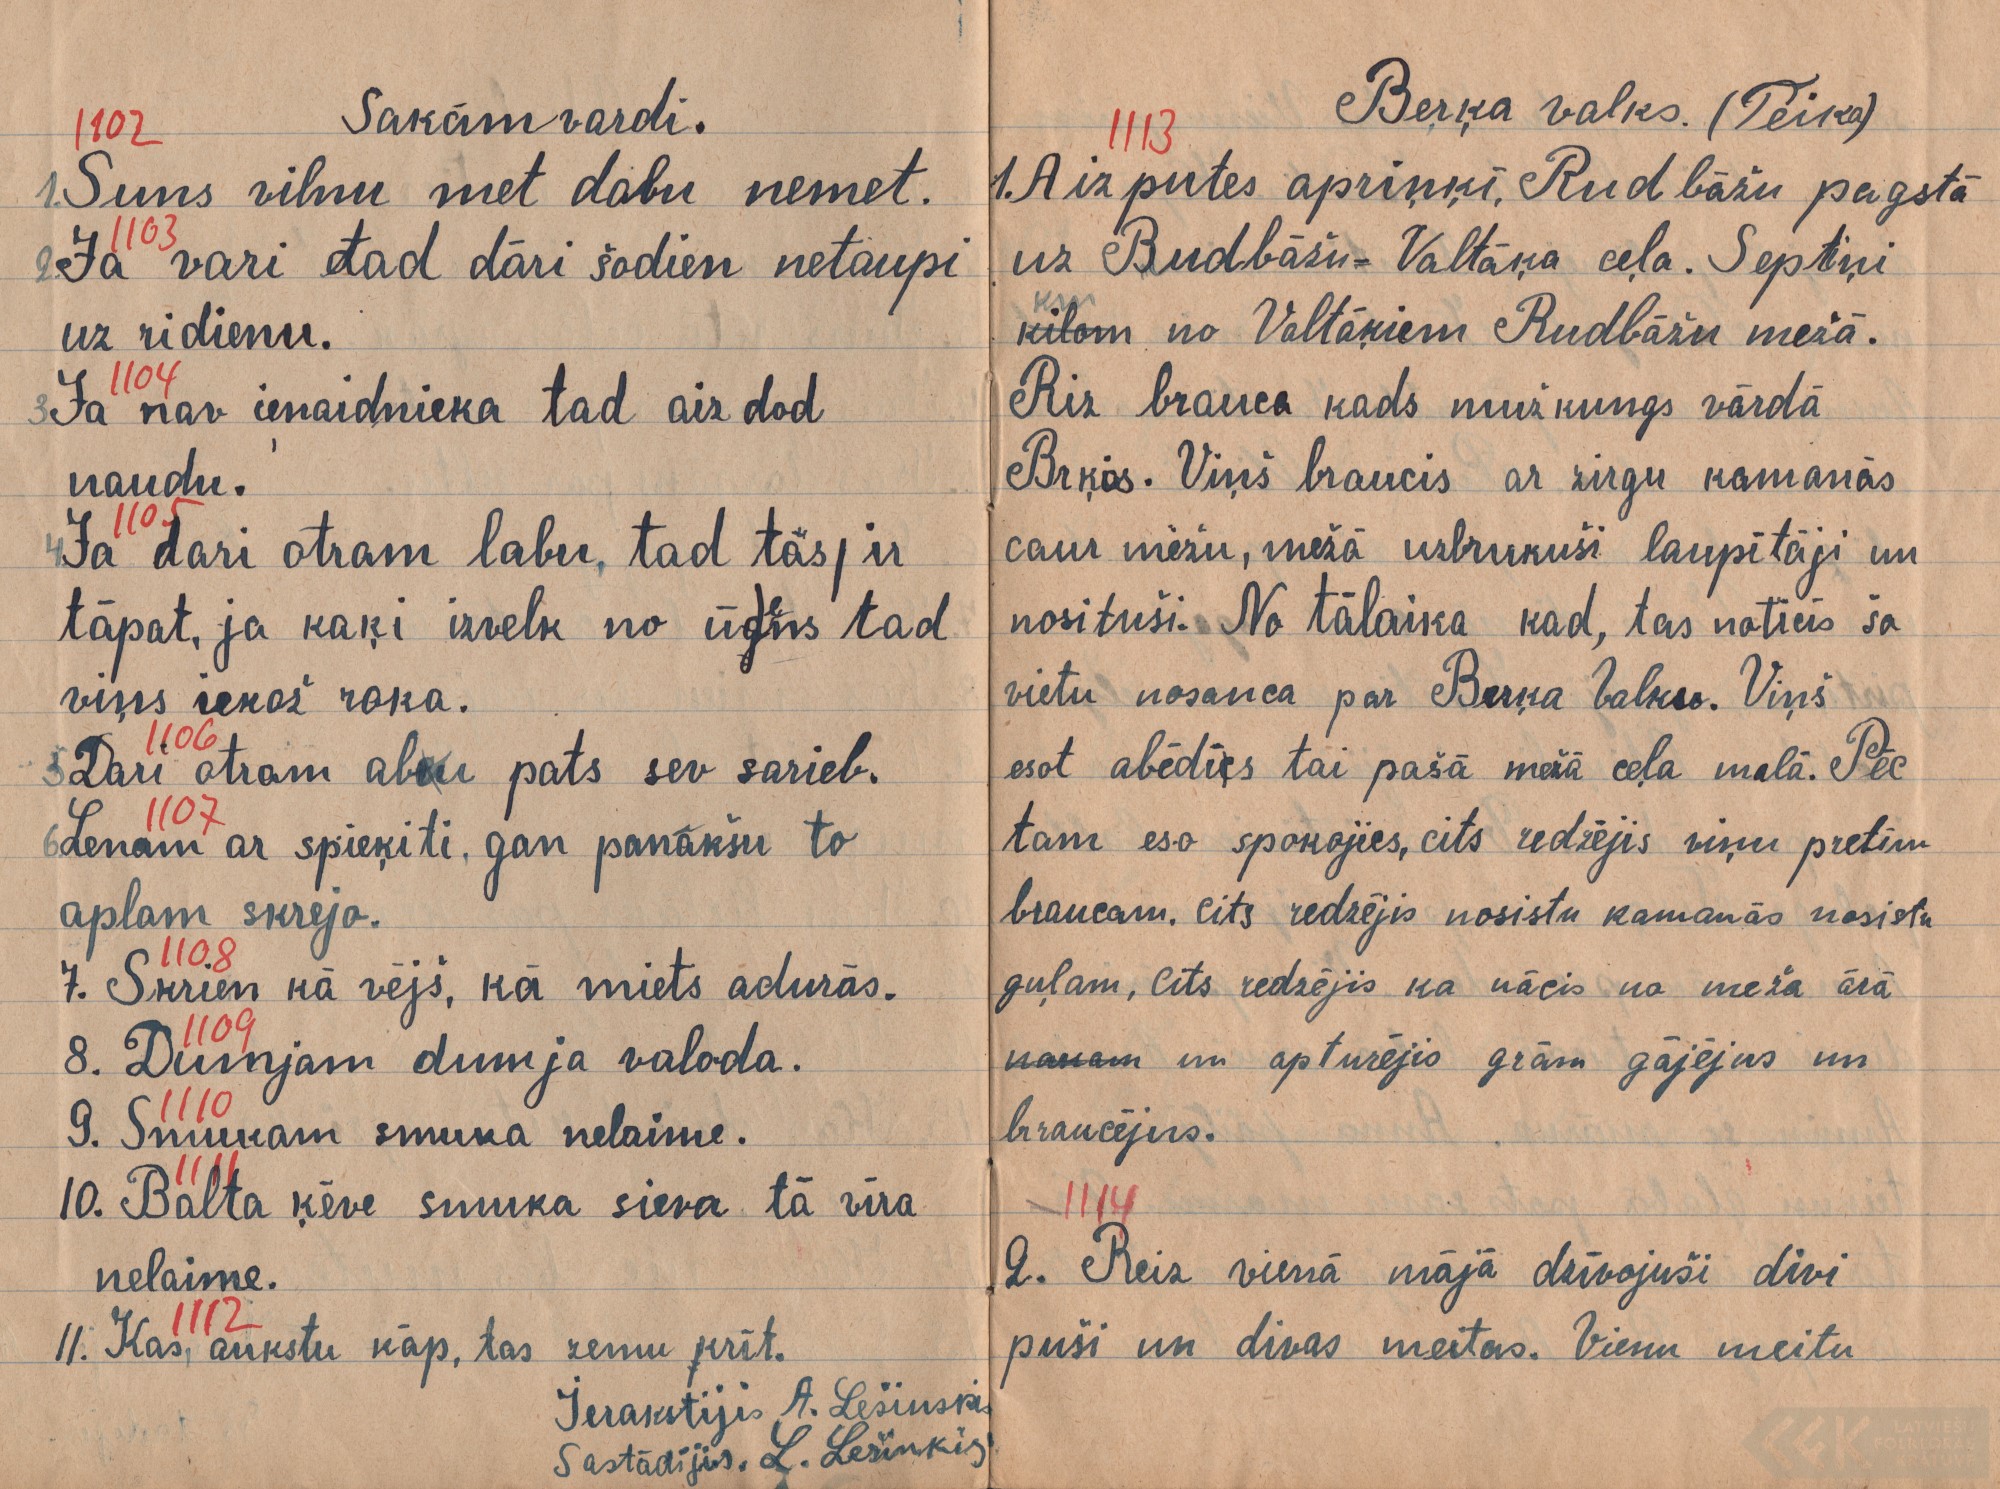 Sakāmvardi.
1102
1. Suns vilnu met dabu nemet.
1103
2. Ja vari tad dāri šodien netaupi
uz ridienu.
1104
3. Ja nav ienaidnieka tad aizdod
naudu.
1105
4. Ja dari otram labu, tad tās ir
tāpat, ja kaķi izvelk no ūgens tad
viņs iekož roka.
1106
5 Dari otram abeu pats sev sarieb.
1107
6 Lenam ar spieķiti, gan panākšu to
aplam skrejo.
1108
7. Skrien kā vējš, kā miets adurās.
1109
8. Dumjam dumja valoda.
1110
9. Smukam smuka nelaime.
1111
10. Balta ķēve smuka sieva tā vīra
nelaime.
1112
11. Kas, aukstu kāp, tas zemu krīt.
Ierakstijis A. Lešinskis
Sastādijis. L. Lešinkis
Berķa valks. (Teika)
1113
1. Aizputes apriņķī, Rudbāžu pagstā
uz Budbāžu- Valtāķa ceļa. Septiņi
km
kilom no Valtāķiem Rudbāžu mežā.
Riz brauca kads muižkungs vārdā
Brķis. Viņš braucis ar zirgu kamanās
caur mežu, mežā uzbrukuši laupītāji un
nosituši. No tālaika kad, tas noticis šo
vietu nosauca par Berķa Valku. Viņš
esot abēdies tai pašā mežā ceļa malā. Pēc
tam eso spokojies, cits redzējis viņu pretim
braucam. Cits redzējis nosistu kamanās nosistu
guļam, Cits redzējis ka nācis no meža ārā
nakam un apturējis grām gājējus un
braucējus.
1114
2. Reiz vienā mājā dzīvojuši divi
puši un divas meitas. Vienu meitu
LATVIEŠU
FOLKLORAS
KRĀTUVE